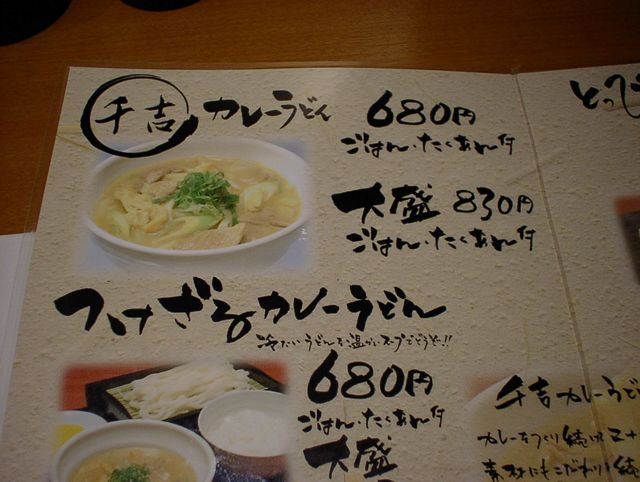 千吉 カレーうどん 680円
ごはん・たくあん付
大盛 830円
ごはん・たくあん付
つけざるカレーうどん
冷たいうどんを温かいスープでどうぞ!!
680円
ごはん・たくあん付
大盛
とっぴ
千吉カレーうど
カレーをつくり続け
素材にもこだわり続